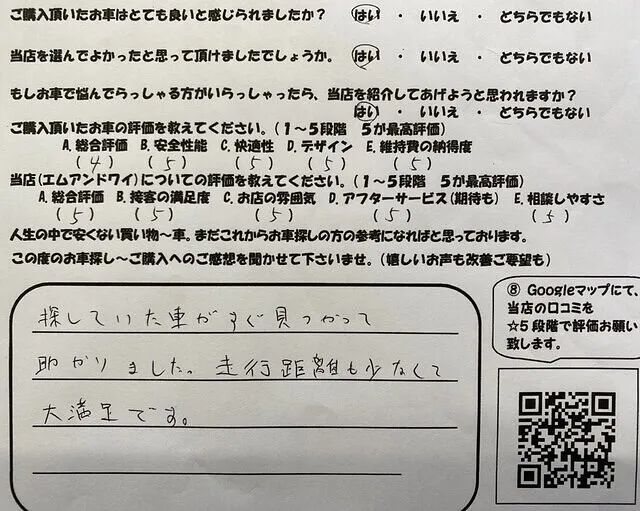 ご購入頂いたお車はとても良いと感じられましたか？ はい ・ いいえ ・ どちらでもない
当店を選んでよかったと思って頂けましたでしょうか。 はい ・ いいえ ・ どちらでもない
もしお車で悩んでらっしゃる方がいらっしゃったら、当店を紹介してあげようと思われますか？
はい ・ いいえ ・ どちらでもない
ご購入頂いたお車の評価を教えてください。(１～５段階 ５が最高評価)
A.総合評価 B.安全性能 C.快適性 D.デザイン E.維持費の納得度
(4) (5) (5) (5) (5)
当店(エムアンドワイ)についての評価を教えてください。(１～５段階 ５が最高評価)
A.総合評価 B.接客の満足度 C.お店の雰囲気 D.アフターサービス(期待も) E.相談しやすさ
(5) (5) (5) (5) (5)
人生の中で安くない買い物～車。まだこれからお車探しの方の参考になればと思っております。
この度のお車探し～ご購入へのご感想を聞かせて下さいませ。(嬉しいお声も改善ご要望も)
探していた車がすぐ見つかって
助かりました。走行距離も少なくて
大満足です。
⑧ Googleマップにて、
当店の口コミを
☆５段階で評価お願い
致します。